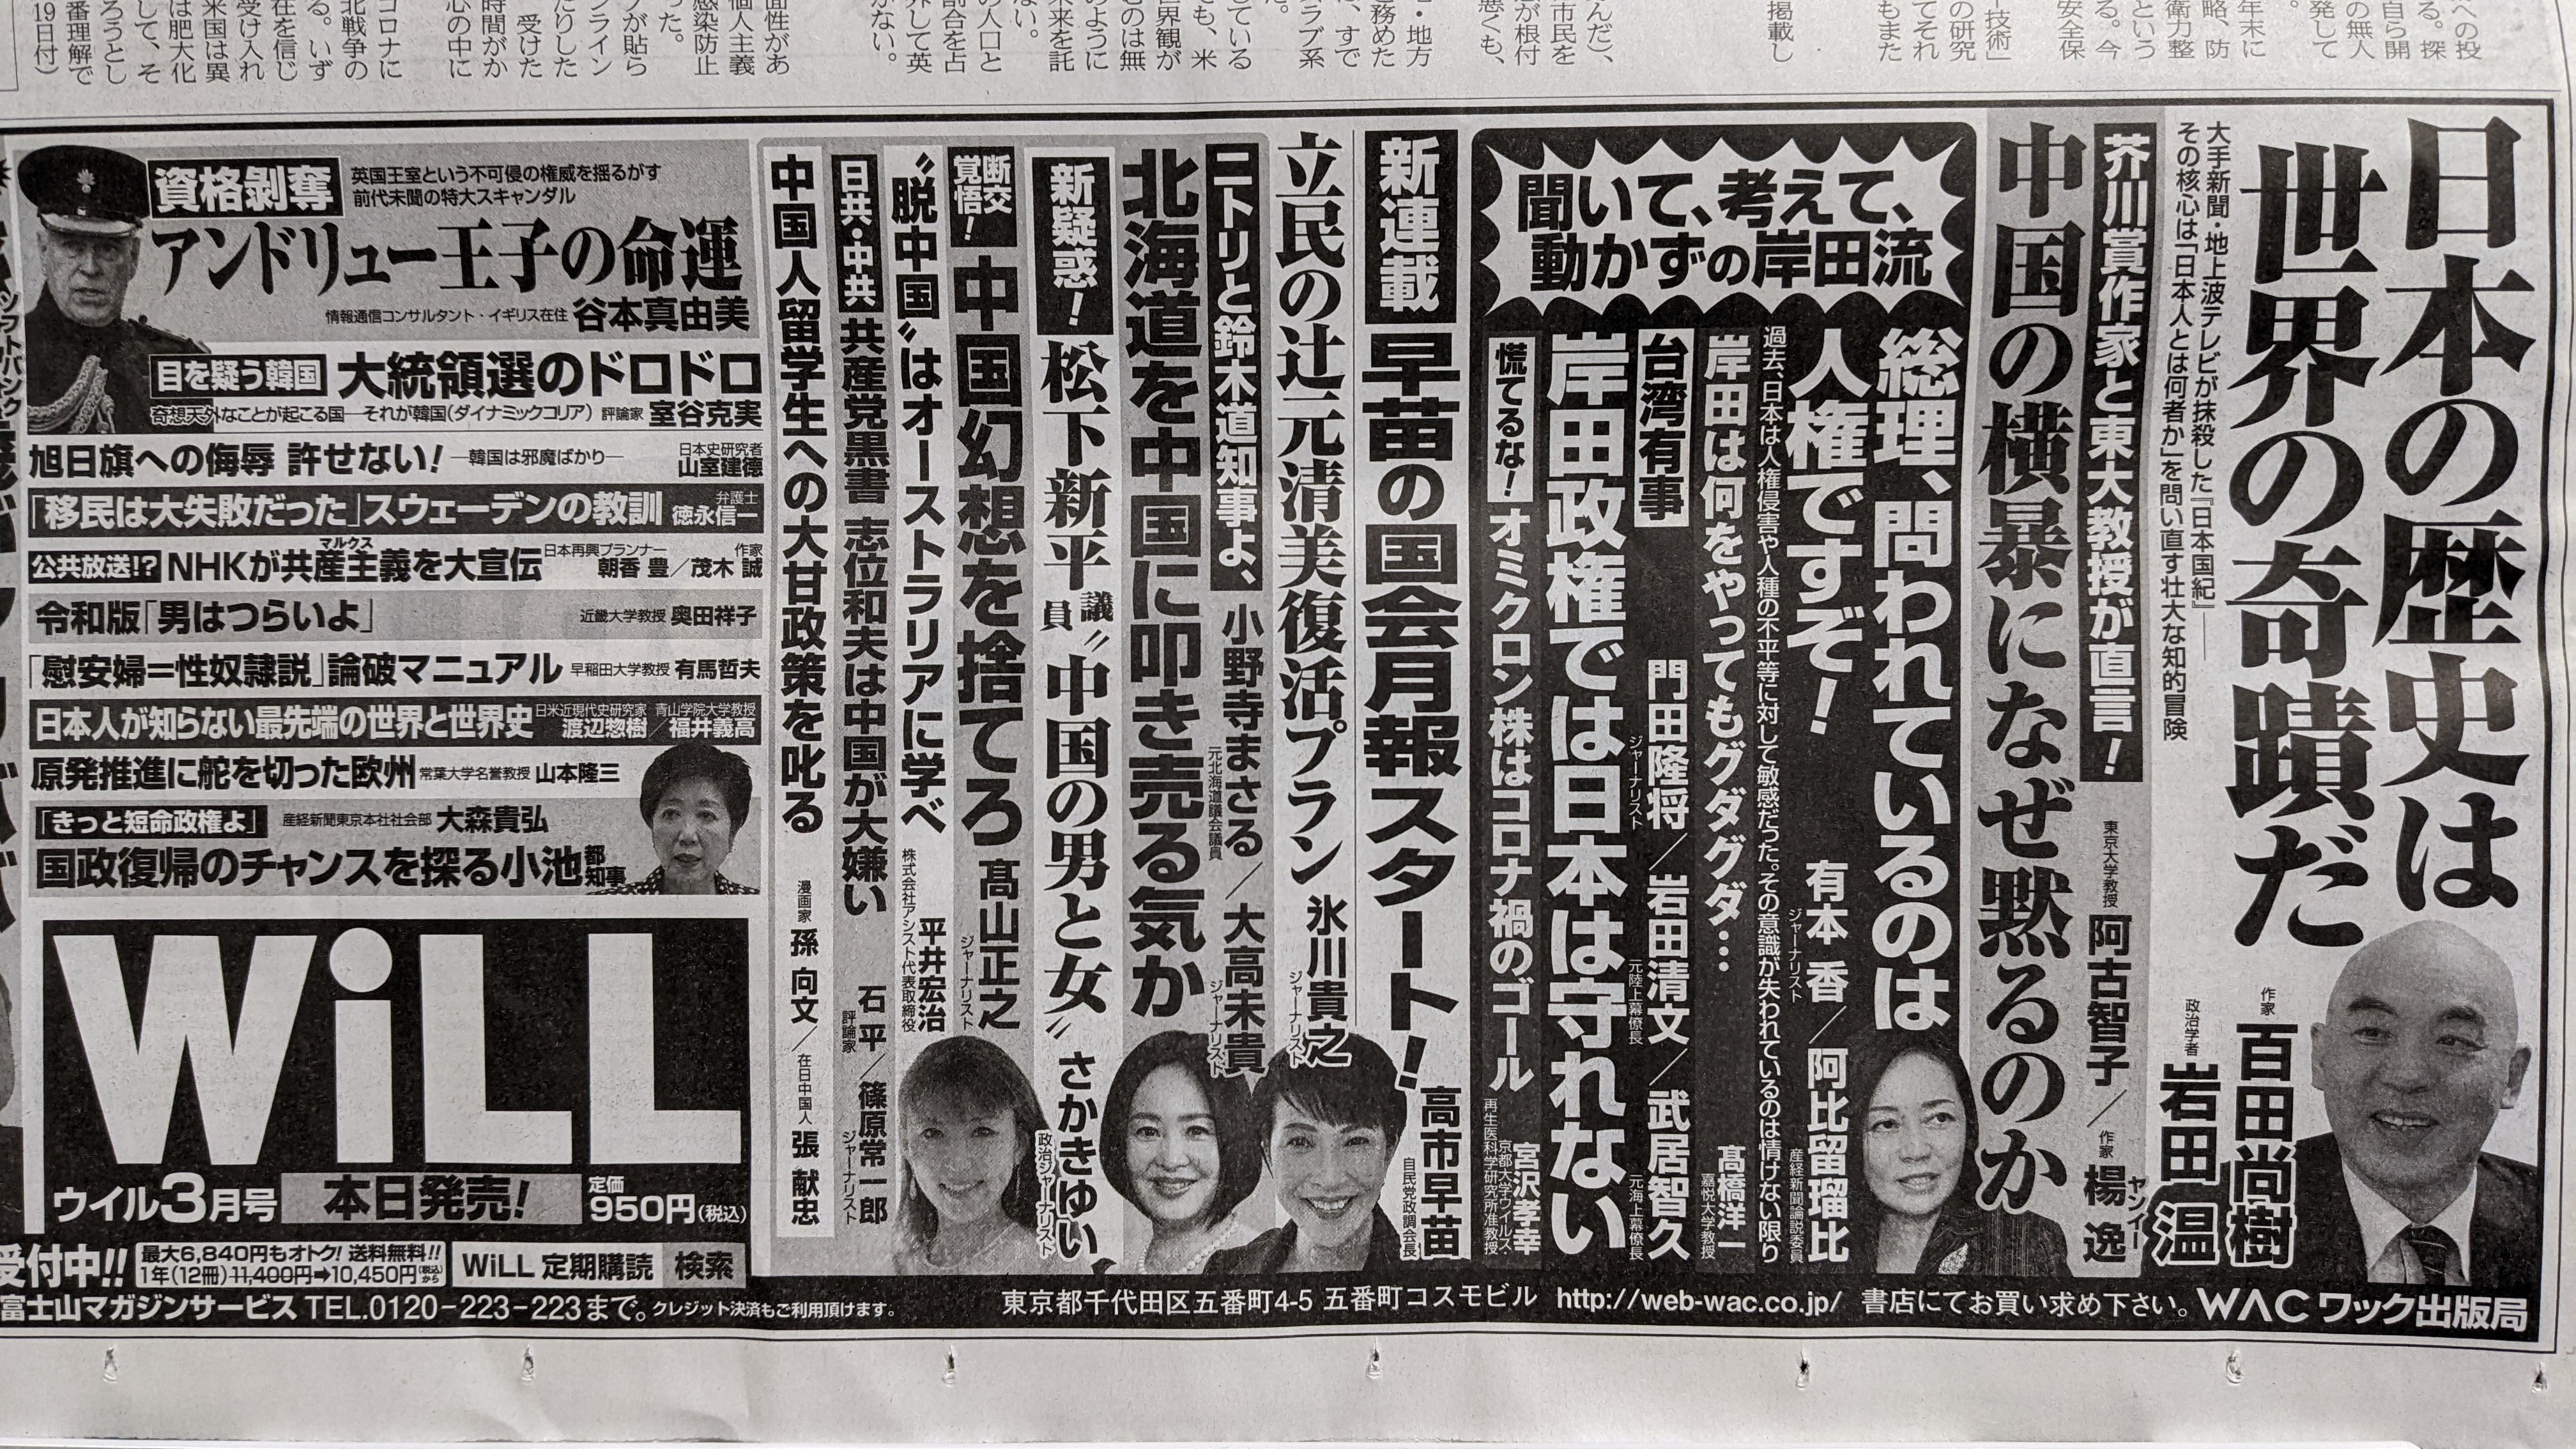 への投
る。探
自ら開
の無人
発して
年末に
略、防
衛力整
という
る。今
安全保
技術」
の研究
てそれ
もまた
掲載し
んだ」、
市民を
が根付
悪くも、
・地方
務めた
、すで
ラブ系
している
も、米
世界観が
のは無
のように
未来を託
ない。
の人口と
割合を占
界して英
がない。
面性があ
個人主義
感染防止
った。
プが貼ら
ンライン
たりした
受けた
時間がか
心の中に
コロナに
北戦争の
る。いず
在を信じ
受け入れ
米国は異
は肥大化
して、そ
ろうとし
番理解で
19日付）
日本の歴史は
世界の奇蹟だ
作家 百田尚樹
政治学者 岩田 温
大手新聞・地上波テレビが抹殺した『日本国紀』――
その核心は「日本人とは何者か」を問い直す壮大な知的冒険
芥川賞作家と東大教授が直言！
東京大学教授 阿古智子／作家 楊 逸
ヤンイー
中国の横暴になぜ黙るのか
聞いて、考えて、
動かずの岸田流
総理、問われているのは
人権ですぞ！
ジャーナリスト 有本 香／産経新聞論説委員 阿比留瑠比
過去、日本は人権侵害や人種の不平等に対して敏感だった。その意識が失われているのは情けない限り
岸田は何をやってもグダグダ…
嘉悦大学教授 髙橋洋一
台湾有事
ジャーナリスト 門田隆将／元陸上幕僚長 岩田清文／元海上幕僚長 武居智久
岸田政権では日本は守れない
慌てるな！ オミクロン株はコロナ禍のゴール
京都大学ウイルス・
再生医科学研究所准教授 宮沢孝幸
新連載 早苗の国会月報スタート！
自民党政調会長 高市早苗
立民の辻元清美復活プラン ジャーナリスト 氷川貴之
ニトリと鈴木道知事よ、
元北海道議会議員 小野寺まさる／ジャーナリスト 大高未貴
北海道を中国に叩き売る気か
新疑惑！ 松下新平議員〝中国の男と女〟 政治ジャーナリスト さかきゆい
断交覚悟！ 中国幻想を捨てろ ジャーナリスト 髙山正之
〝脱中国〟はオーストラリアに学べ 株式会社アシスト代表取締役 平井宏治
日共・中共 共産党黒書 志位和夫は中国が大嫌い 評論家 石 平／ジャーナリスト 篠原常一郎
中国人留学生への大甘政策を叱る 漫画家 孫 向文／在日中国人 張 献忠
資格剝奪
英国王室という不可侵の権威を揺るがす
前代未聞の特大スキャンダル
アンドリュー王子の命運
情報通信コンサルタント・イギリス在住 谷本真由美
目を疑う韓国 大統領選のドロドロ
奇想天外なことが起こる国―それが韓国（ダイナミックコリア） 評論家 室谷克実
旭日旗への侮辱 許せない！ ―韓国は邪魔ばかり― 日本史研究者 山室建德
「移民は大失敗だった」スウェーデンの教訓 弁護士 徳永信一
公共放送!? NHKが共産主義を大宣伝 日本再興プランナー 朝香 豊／作家 茂木 誠
マルクス
令和版「男はつらいよ」 近畿大学教授 奥田祥子
「慰安婦＝性奴隷説」論破マニュアル 早稲田大学教授 有馬哲夫
日本人が知らない最先端の世界と世界史 日米近現代史研究家 渡辺惣樹／青山学院大学教授 福井義高
原発推進に舵を切った欧州 常葉大学名誉教授 山本隆三
「きっと短命政権よ」 産経新聞東京本社社会部 大森貴弘
国政復帰のチャンスを探る小池都知事
WiLL
ウイル3月号 本日発売！ 定価950円（税込）
受付中!! 最大6,840円もオトク！ 送料無料!!
1年（12冊）11,400円➡10,450円（税込）から
WiLL 定期購読 検索
富士山マガジンサービス TEL.0120-223-223まで。クレジット決済もご利用頂けます。
東京都千代田区五番町4-5 五番町コスモビル http://web-wac.co.jp/ 書店にてお買い求め下さい。WAC ワック出版局